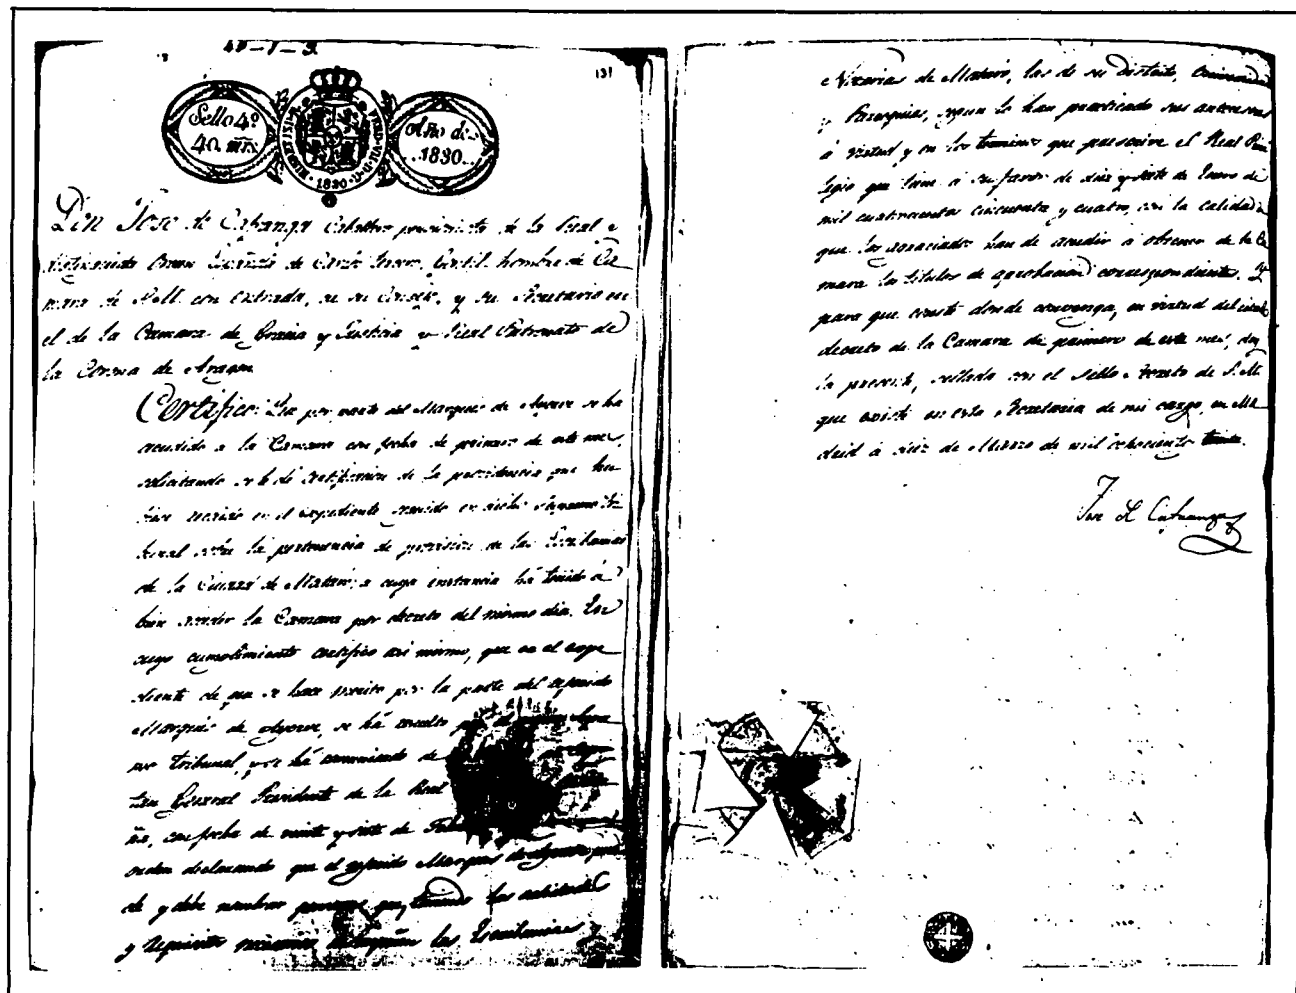 40-1-3.
131
Sello 4º
40 mrs.
HISPANIARUM REX 1830
Año de
1830.
Don Jose de Cafranga Caballero pensionista de la Real y
distinguida Orden Española de Carlos Tercero, Gentil hombre de Ca
mara de S.M. con entrada, de su Consejo, y su Secretario en
el de la Camara de Gracia y Justicia y Real Patronato de
la Corona de Aragon
Certifico: Que por parte del Marques de Ayerve se ha
acudido a la Camara con fecha de primero de este mes,
solicitando se le dé certificacion de la providencia que hu
biese recaido en el expediente seguido en dicho Supremo Tri
bunal sobre la pertenencia de provision de las Escribanias
de la Ciudad de Mataró; a cuya instancia ha tenido á
bien acceder la Camara por decreto del mismo dia. En
cuyo cumplimiento certifico asi mismo, que en el espe
diente de que se hace merito por la parte del referido
Marques de Ayerve, se há resuelto por el Supre
mo Tribunal, y se há comunicado de
tan General Presidente de la Real
ña, con fecha de veinte y siete de
orden declarando que el referido Marques de Ayerve pue
de y debe nombrar personas que, teniendo las calidades
y requisitos necesarios las Escribanias y
Notarias de Mataró, las de su distrito,
y Parroquias, segun lo han practicado sus antecesores
á virtud y en los terminos que prescrive el Real Privi
legio que tiene á su favor de diez y siete de Enero de
mil cuatrocientos cincuenta y cuatro, con la calidad de
que los agraciados han de acudir á obtener de la Ca
mara los titulos de aprobacion correspondientes. Y
para que conste donde convenga, en virtud del citado
decreto de la Camara de primero de este mes, doy
la presente, sellada con el Sello Secreto de S.M.
que existe en esta Secretaria de mi cargo, en Ma
drid á diez de Marzo de mil ochocientos treinta.
Jose de Cafranga